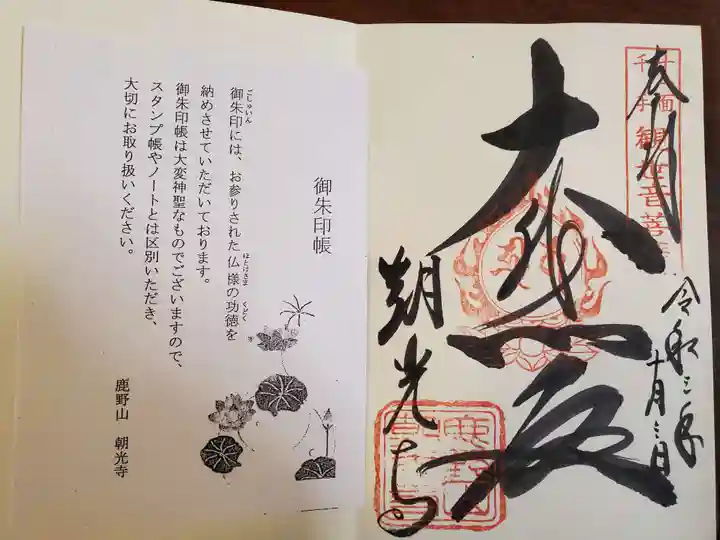 奉拝
令和三年
十月三日
大悲殿
朝光寺
御朱印帳
御朱印には、お参りされた仏様の功徳を
ごしゅいん
ほとけさま
くどく
納めさせていただいております。
御朱印帳は大変神聖なものでございますので、
スタンプ帳やノートとは区別いただき、
大切にお取り扱いください。
鹿野山 朝光寺